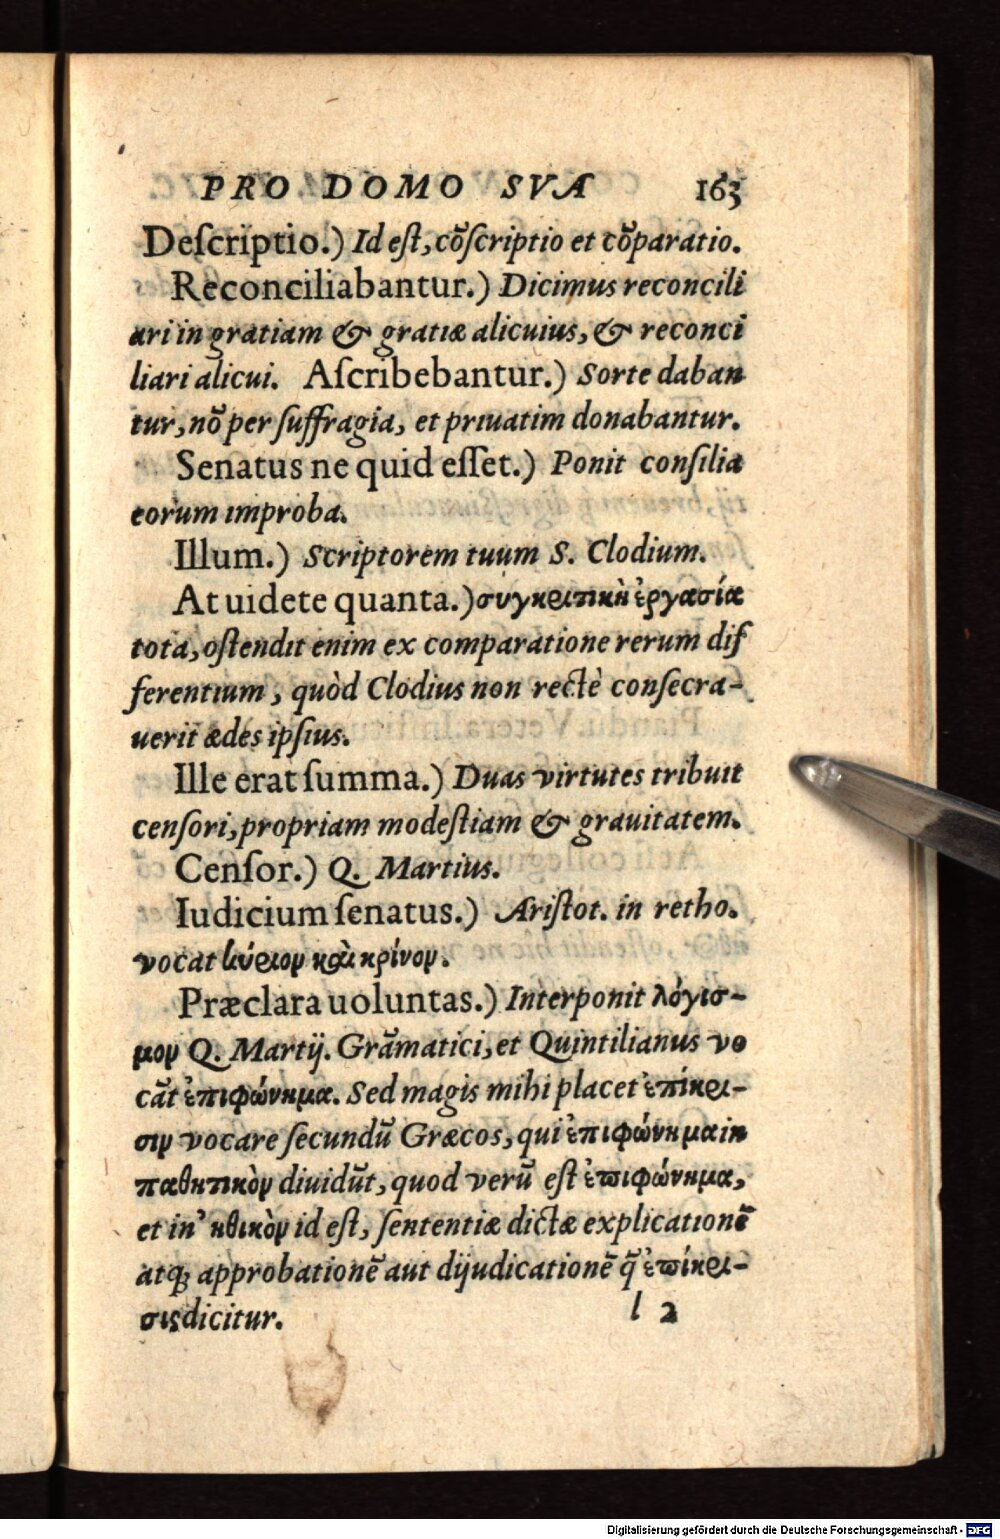 PRO DOMO SVA 163
Deſcriptio.) Id eſt, cōſcriptio et cōparatio.
Reconciliabantur.) Dicimus reconcili
ari in gratiam & gratiæ alicuius, & reconci
liari alicui. Aſcribebantur.) Sorte daban
tur, nō per ſuffragia, et priuatim donabantur.
Senatus ne quid eſſet.) Ponit conſilia
eorum improba.
Illum.) Scriptorem tuum S. Clodium.
At uidete quanta.) συγκριτικὴ ἐργασία
tota, oſtendit enim ex comparatione rerum dif
ferentium, quòd Clodius non rectè conſecra-
uerit ædes ipſius.
Ille erat ſumma.) Duas virtutes tribuit
cenſori, propriam modeſtiam & grauitatem.
Cenſor.) Q. Martius.
Iudicium ſenatus.) Ariſtot. in retho.
vocat κύριον καὶ κρίνον.
Præclara uoluntas.) Interponit λόγισ-
μον Q. Martij. Grāmatici, et Quintilianus vo
cāt ἐπιφώνημα. Sed magis mihi placet ἐπίκρι-
σιν vocare ſecundū Græcos, qui ἐπιφώνημα in
παθητικὸν diuidūt, quod verū eſt ἐπιφώνημα,
et in ἠθικὸν id eſt, ſententiæ dictæ explicationē
atq; approbationē aut dijudicationē q̃ ἐπίκρι-
σις dicitur. l 2
Digitalisierung gefördert durch die Deutsche Forschungsgemeinschaft - DFG